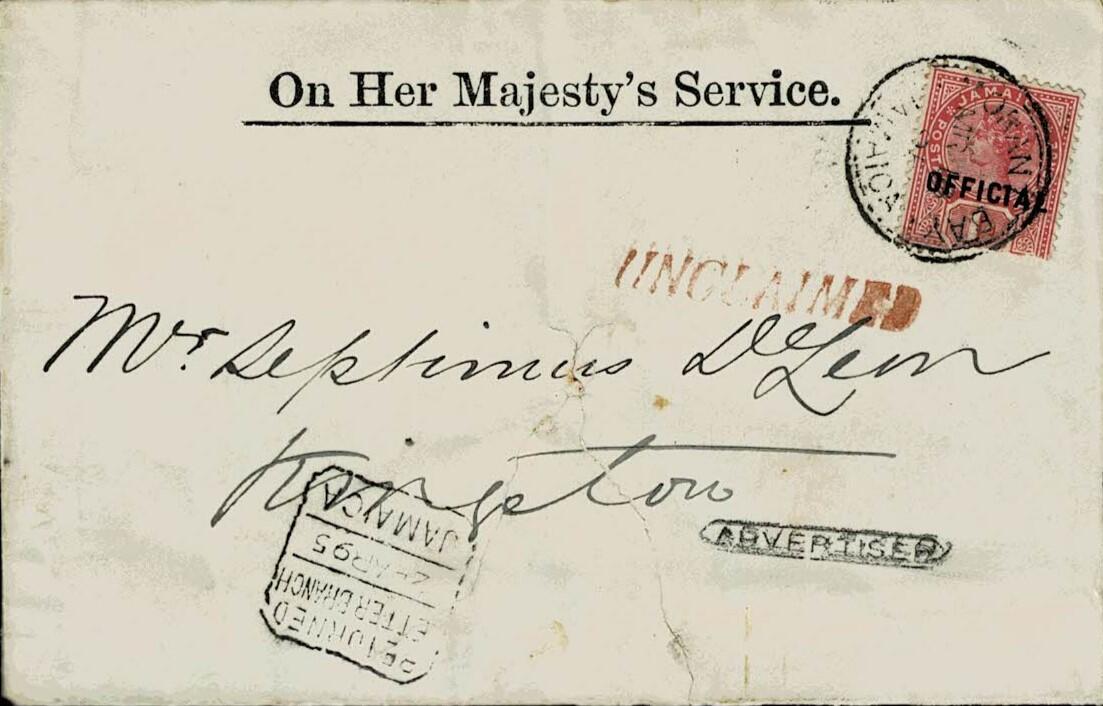 On Her Majesty's Service.
JAMAICA
POSTAGE
OFFICIAL
BAY
JAMAICA
UNCLAIMED
Mr. Septimus DeLeon
Kingston
ADVERTISED
JAMAICA
AR 95
LETTER BRANCH
RETURNED